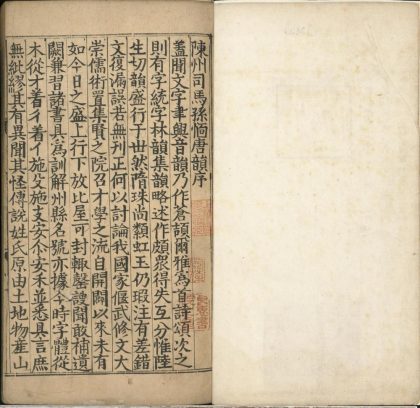 陳州司馬孫愐唐韻序
蓋聞文字聿興音韻乃作蒼頡爾雅為首詩頌次之
則有字統字林韻集韻略述作頗衆得失互分惟陸
生切韻盛行于世然隋珠尚纇虹玉仍瑕注有差錯
文復漏誤若無刊正何以討論我國家偃武修文大
崇儒術置集賢之院召才學之流自開闢以來未有
如今日之盛上行下放比屋可封輒罄謏聞敢補遺
闕兼習諸書具為訓解州縣名號亦據今時字體從
木從才着彳着亻施殳施支安尒安禾並悉具言庶
無紕繆其有異聞其怪傳說姓氏原由土地物產山